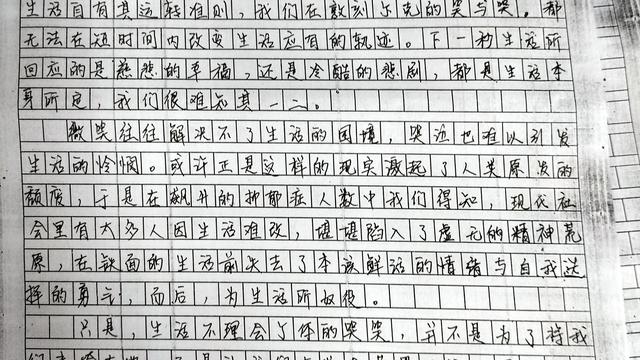 生活自有其运转准则，我们在数刻尔克的哭与笑。都
无法在短时间内改变生活应有的轨迹。下一秒生活所
回应的是慈悲的幸福，还是冷酷的悲剧，都是生活本
身所定，我们很难知其一二。
微笑往往解决不了生活的困境，哭泣也难以引发
生活的怜悯。或许正是这样的现实激起了人类原发的
颓废，于是在飙升的抑郁症人数中我们得知，现代社
会里有太多人因生活难改，堪堪陷入了虚无的精神荒
原，在铁面的生活前失去了本该鲜活的情绪与自我选
择的勇气，而后，为生活所奴役。
只是，生活不理会个体的哭笑，并不是为了将我